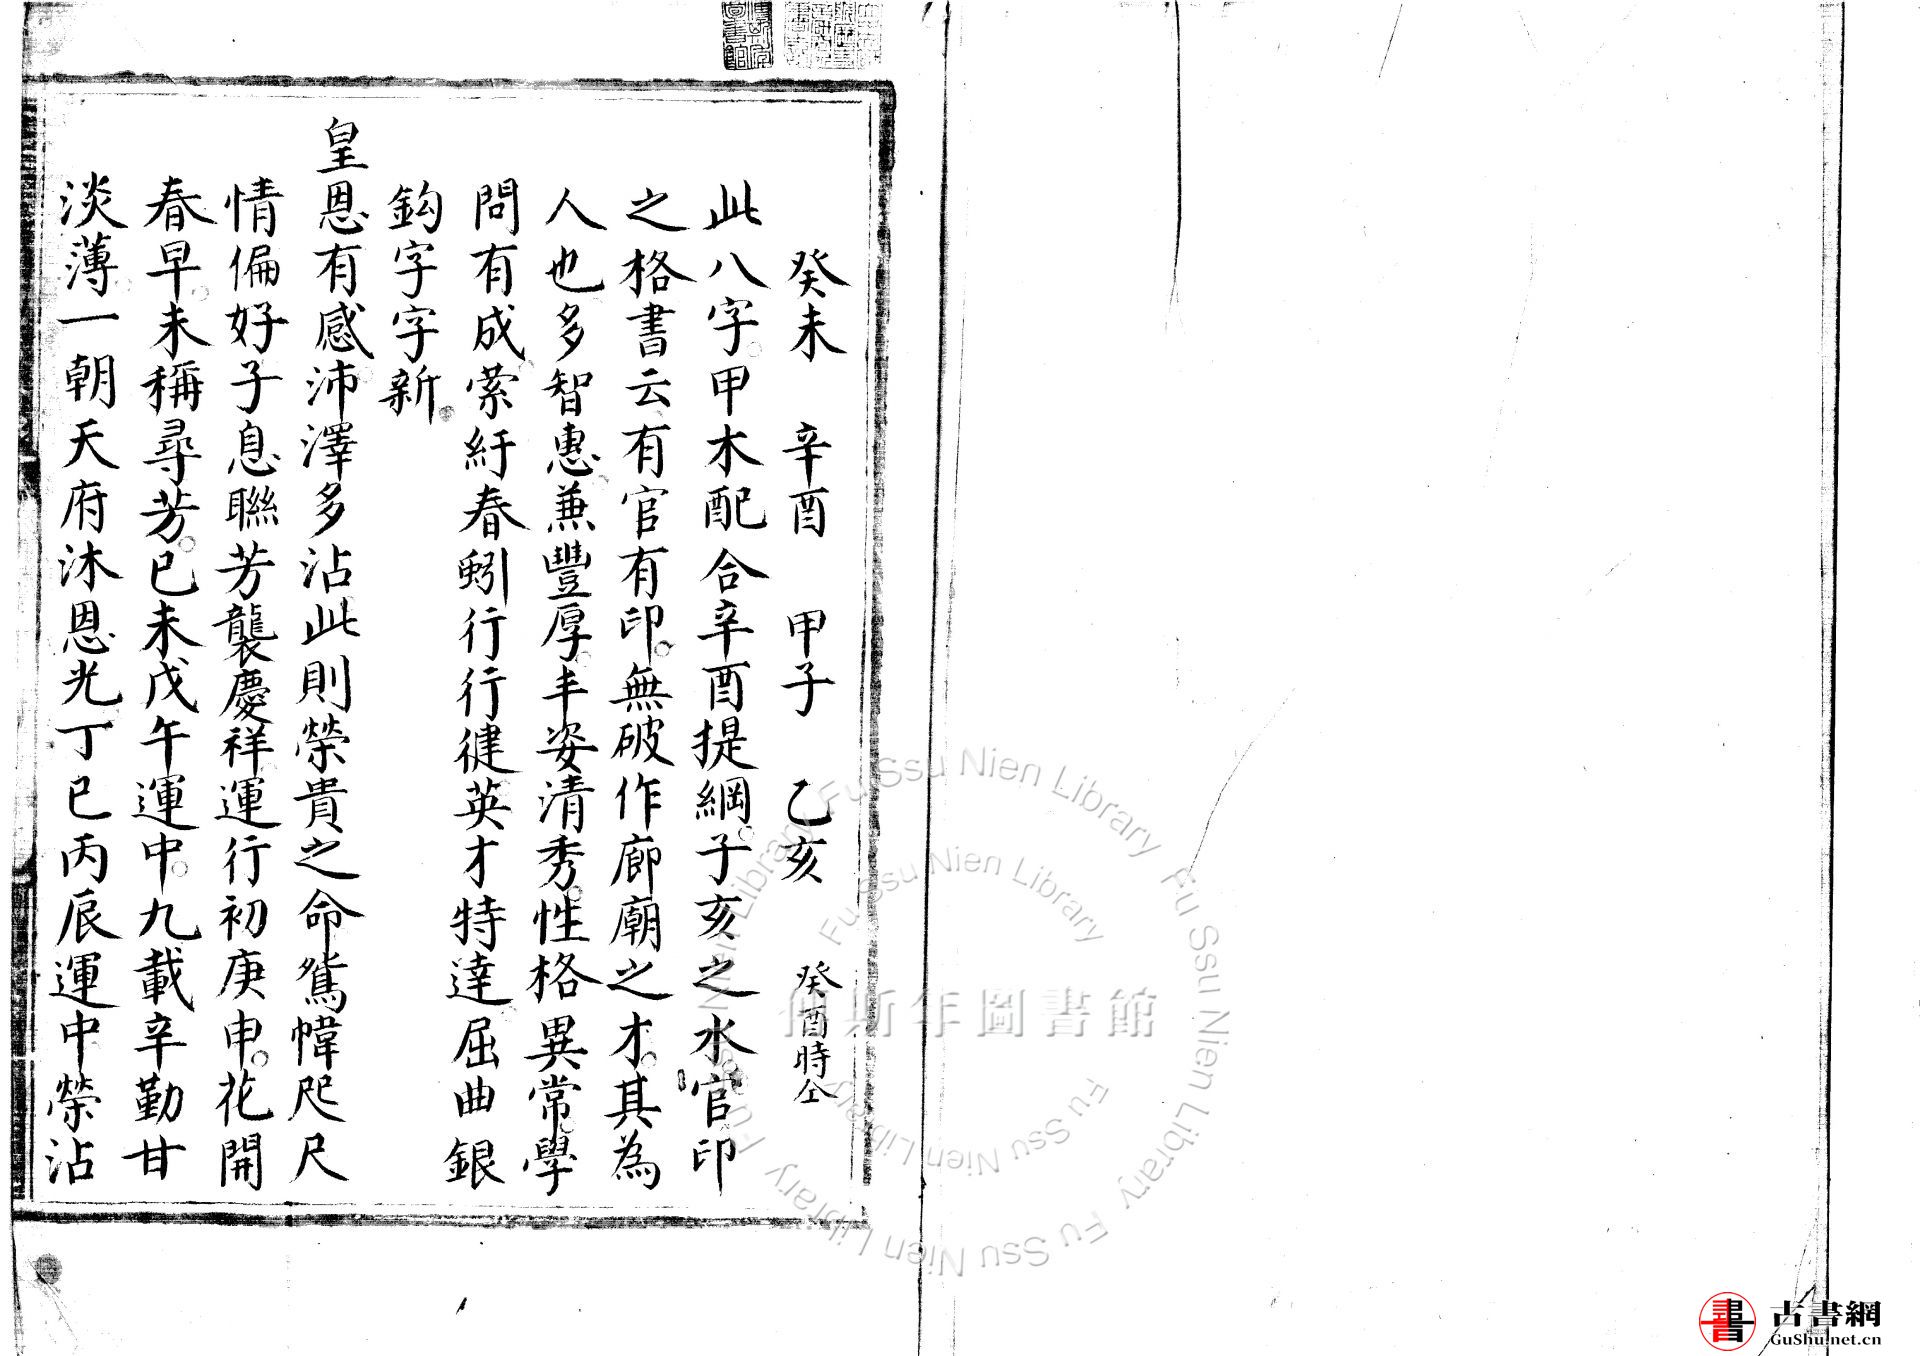 癸未　辛酉　甲子　乙亥　癸酉時全
此八字甲木配合辛酉提綱子亥之水官印
之格書云有官有印無破作廊廟之才其為
人也多智惠兼豐厚丰姿清秀性格異常學
問有成縈紆春蚓行行徤英才特達屈曲銀
鈎字字新
皇恩有感沛澤多沾此則榮貴之命鴛幃咫尺
情偏好子息聯芳襲慶祥運行初庚申花開
春早未稱尋芳已未戊午運中九載辛勤甘
淡薄一朝天府沐恩光丁巳丙辰運中榮沾
傅斯年圖書館
Fu Ssu Nien Library Fu Ssu Nien Library Fu Ssu Nien Library Fu Ssu Nien Library
Fu Ssu Nien Library Fu Ssu Nien Library
書
古書網
GuShu.net.cn